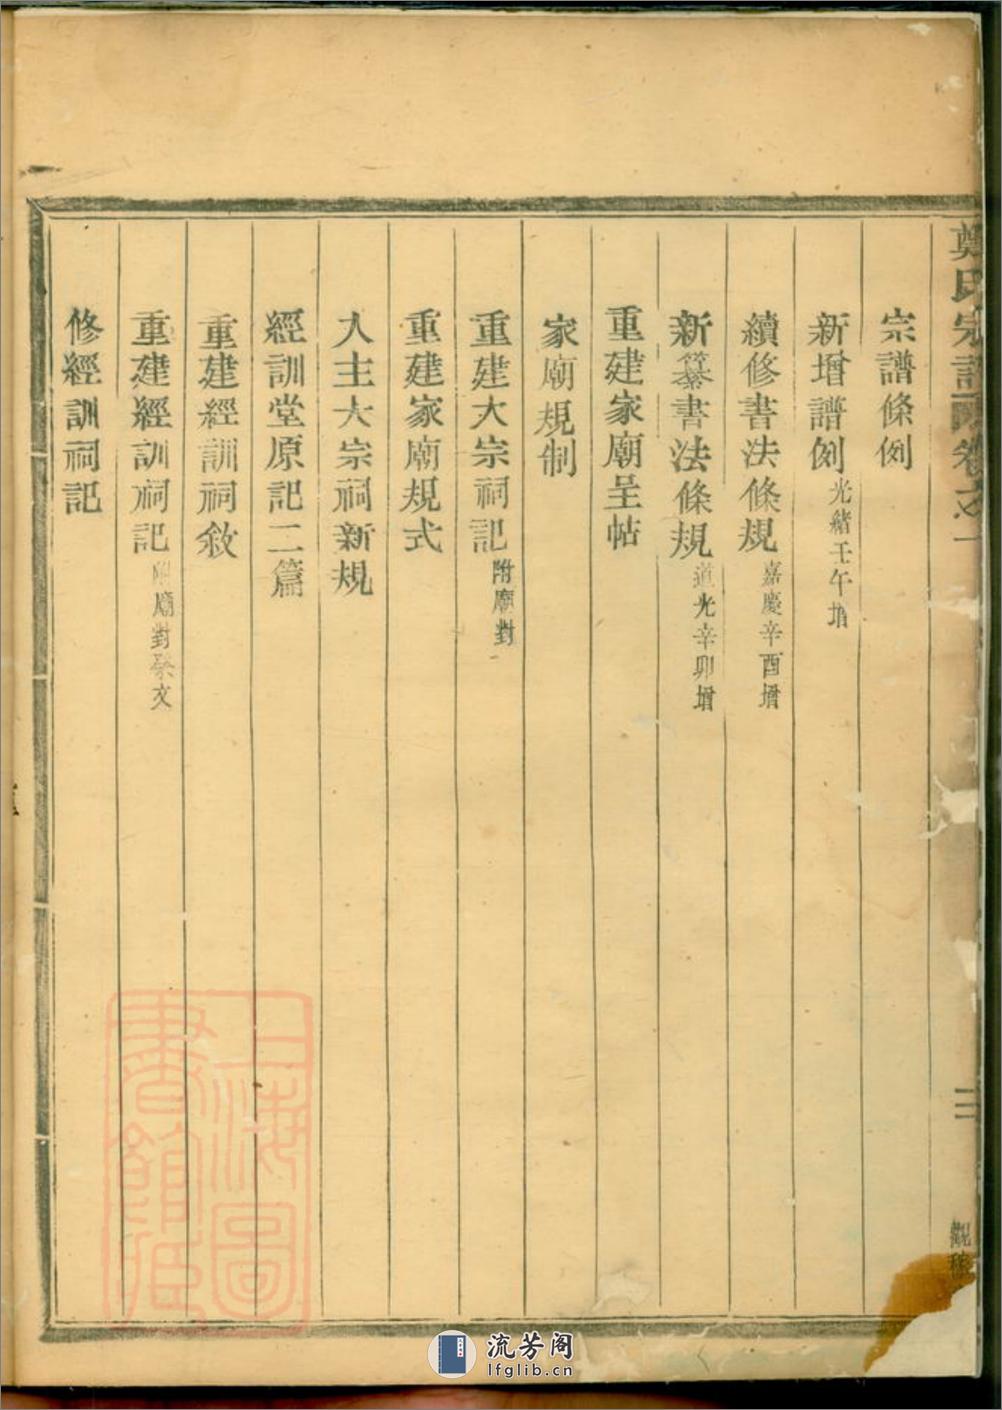 鄭氏宗譜
卷之一
三
宗譜條例
新增譜例 光緒壬午增
續修書法條規 嘉慶辛酉增
新纂書法條規 道光辛卯增
重建家廟呈帖
家廟規制
重建大宗祠記 附廟對
重建家廟規式
入主大宗祠新規
經訓堂原記二篇
重建經訓祠敘
重建經訓祠記 附廟對祭文
修經訓祠記
上海圖書館藏
流芳阁
lfglib.cn